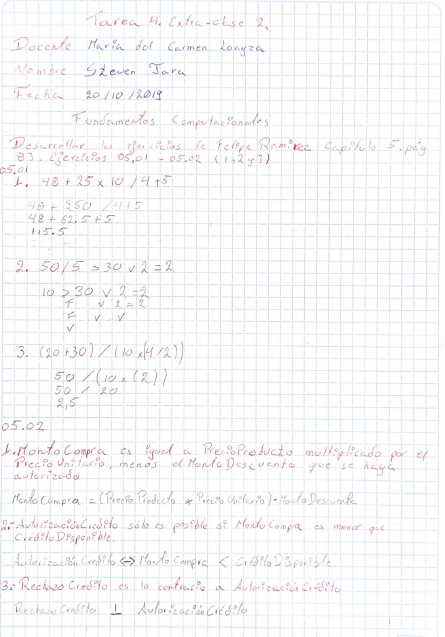 Tarea 4. Extra-clase 2.
Docente María del Carmen Loayza
Nombre Steven Jara
Fecha 20/10/2019
Fundamentos Computacionales
Desarrollar los ejercicios de Felipe Ramirez Capitulo 5. pág
83. Ejercicios 05.01 - 05.02 (1, 2 y 3)
05.01
1. 48 + 25 x 10 / 4 + 5
48 + 250 / 4 + 5
48 + 62.5 + 5
115.5
2. 50/5 > 30 v 2 = 2
10 > 30 v 2 = 2
F v 2 = 2
F v v
v
3. (20+30) / (10 x (4/2))
50 / (10 x (2))
50 / 20
2,5
05.02
1. MontoCompra es igual a PrecioProducto multiplicado por el
PrecioUnitario, menos el MontoDescuento que se haya
autorizado
MontoCompra = (PrecioProducto * PrecioUnitario) - MontoDescuento
2.- AutorizaciónCrédito sólo es posible si MontoCompra es menor que
CréditoDisponible.
AutorizaciónCrédito ⇔ MontoCompra < CréditoDisponible
3.- RechazoCredito es lo contrario a AutorizaciónCrédito
RechazoCredito ⊥ AutorizaciónCrédito